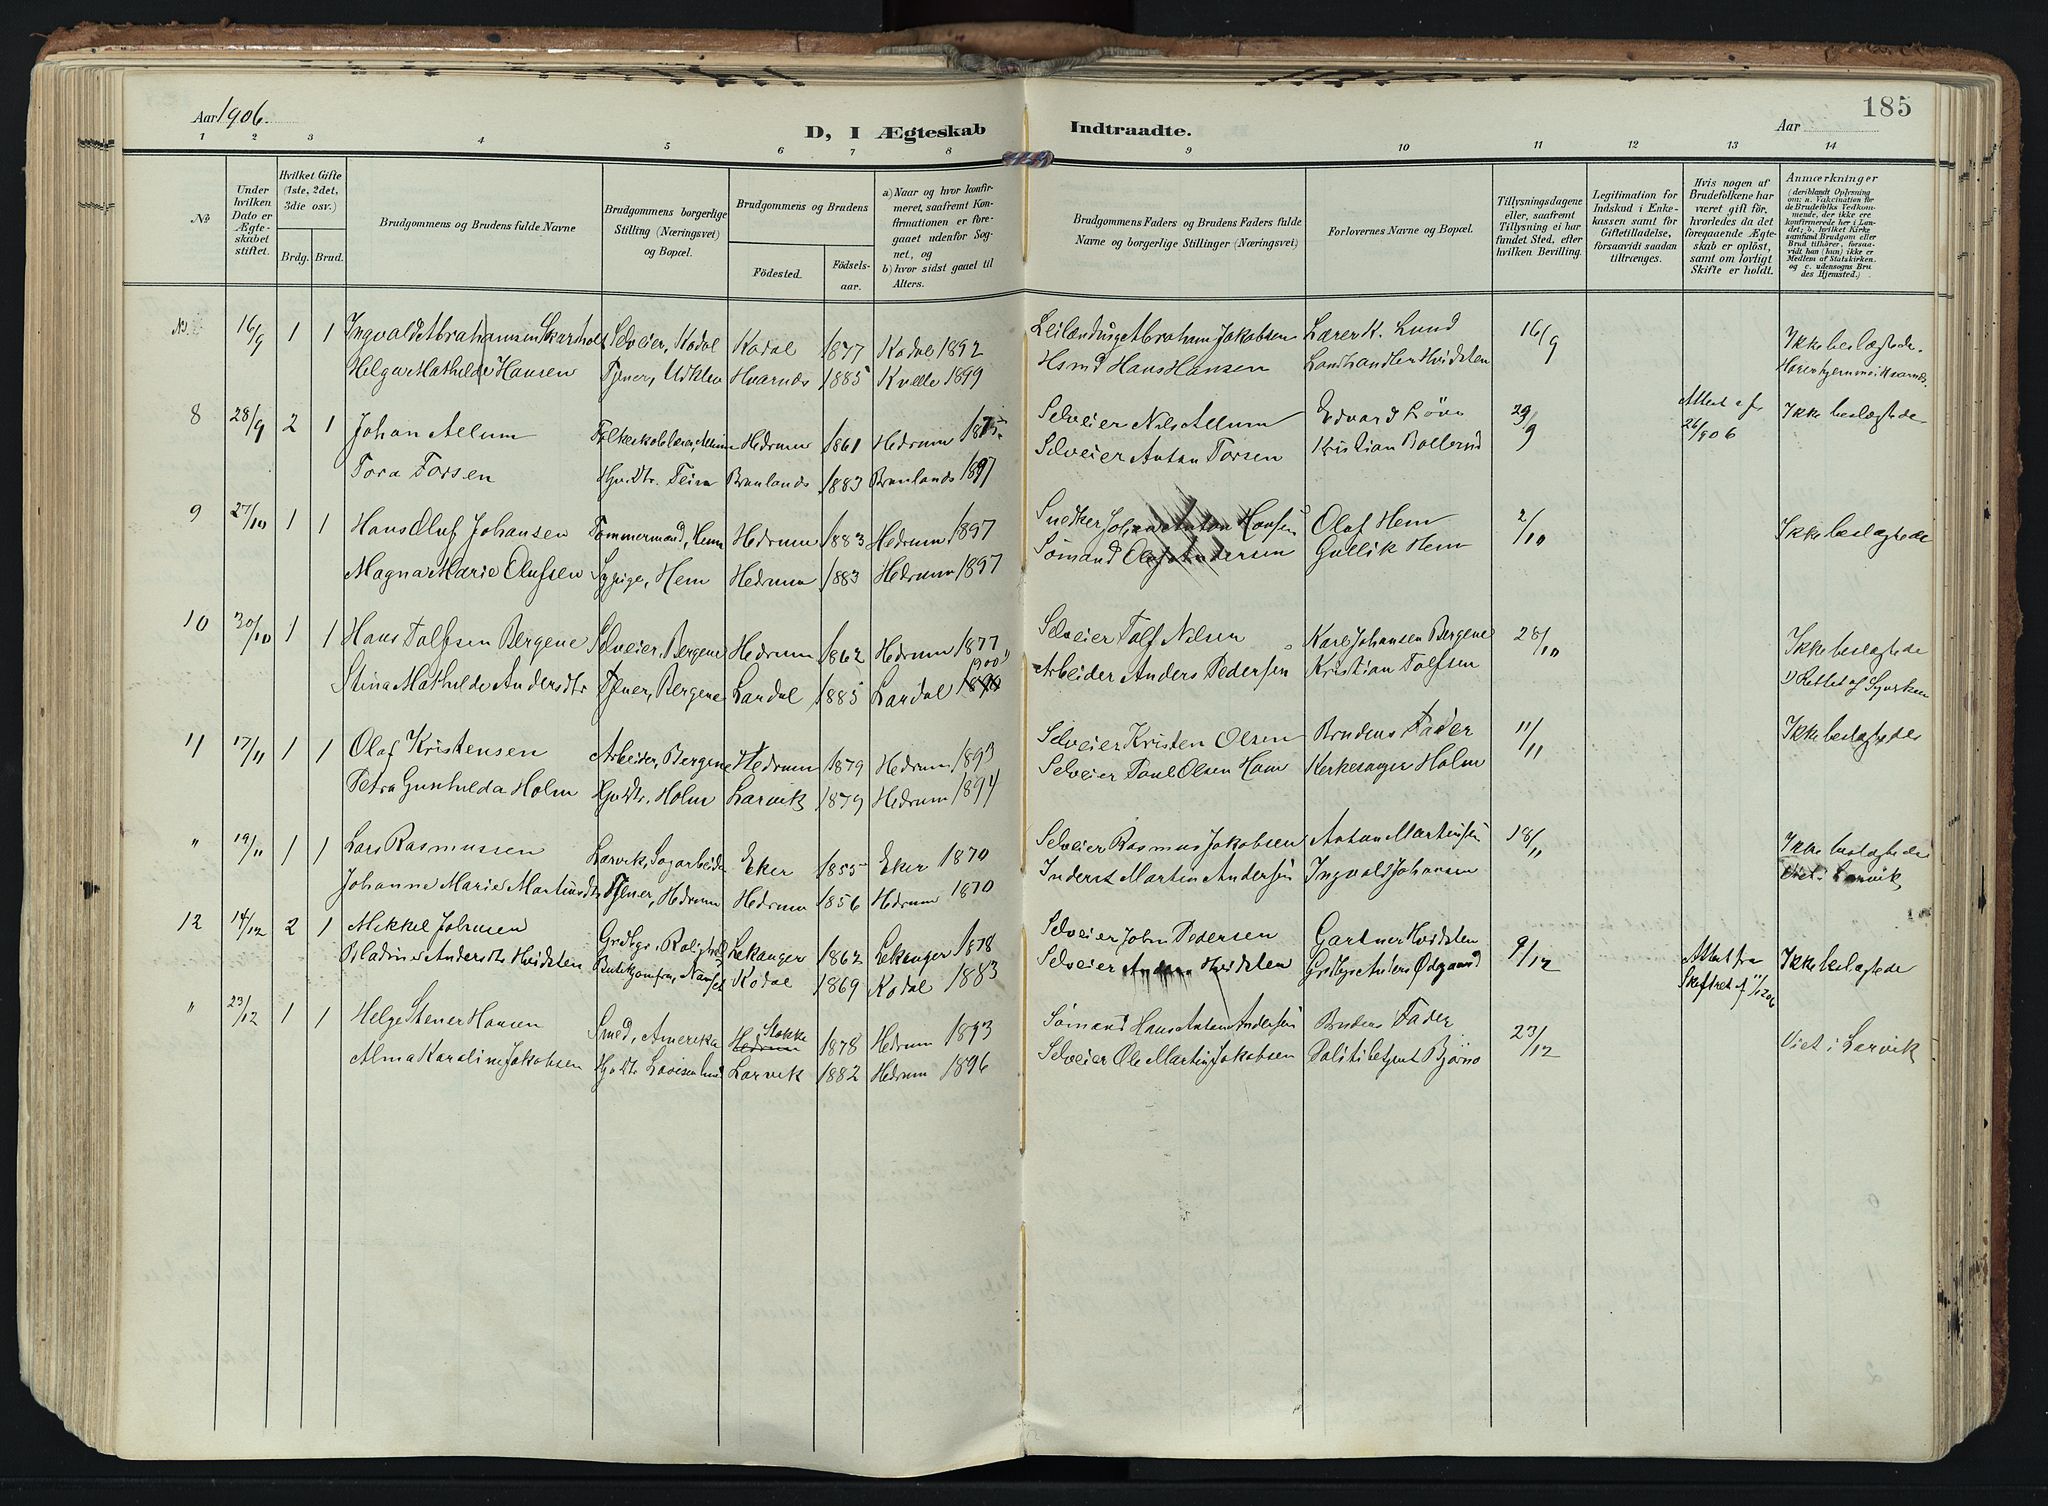 Aar 1906.
D, I Ægteskab Indtraadte.
Aar
185
1 2 3 4 5 6 7 8 9 10 11 12 13 14
No
Under hvilken Dato er Ægteskabet stiftet.
Hvilket Gifte (1ste, 2det, 3die osv.)
Brdg. Brud.
Brudgommens og Brudens fulde Navne
Brudgommens borgerlige Stilling (Næringsvei) og Bopæl.
Brudgommens og Brudens
Födested.
Födselsaar.
a) Naar og hvor konfirmeret, saafremt Konfirmationen er foregaaet udenfor Sognet, og b) hvor sidst gaaet til Alters.
Brudgommens Faders og Brudens Faders fulde Navne og borgerlige Stillinger (Næringsvei)
Forlovernes Navne og Bopæl.
Tillysningsdagene eller, saafremt Tillysning ei har fundet Sted, efter hvilken Bevilling.
Legitimation for Indskud i Enkekassen samt for Giftetilladelse, forsaavidt saadan tiltrænges.
Hvis nogen af Brudefolkene har været gift för, hvorledes da det foregaaende Ægteskab er oplöst, samt om lovligt Skifte er holdt.
Anmærkninger (deriblandt Oplysning om: a. Vakcination for de Brudefolks Vedkommende, der ikke ere konfirmerede her i Landet; b. hvilket Kirkesamfund Brudgom eller Brud tilhörer, forsaavidt han (hun) ikke er Medlem af Statskirken og c. udensogns Brudes Hjemsted.)
16/9 1 1 Ingvald Abrahamsen Skarsholt Selveier, Kodal Kodal 1877 Kodal 1892 Leilænding Abraham Jakobsen Lærer K. Lund 16/9 Ikke beslægtede.
Helga Mathilde Hansen Tjener, Hvarnæs 1885 Kvelle 1899 Hsmd Hans Hansen Landhandler Hvidsten
8 28/9 2 1 Johan Allum Hedrum 1861 Hedrum 1875 Selveier Nils Allum Edvard Löve 29/9 Attest af 26/906 Ikke beslægtede
Tora Torsen Gbr.dtr. Brunlanæs 1883 Brunlanæs 1897 Selveier Anton Torsen Kristian Bollerud
9 27/10 1 1 Hans Oluf Johansen Tømmermand, Hem Hedrum 1883 Hedrum 1897 Snedker Johan Anton Hansen Olaf Hem 2/10 Ikke beslægtede
Magna Marie Olufsen Sypige, Hem Hedrum 1883 Hedrum 1897 Sømand Oluf Andersen Gullik Hem
10 30/10 1 1 Hans Tolfsen Bergene Selveier, Bergene Hedrum 1862 Hedrum 1877 Selveier Tolf Nilsen Karl Johansen Bergene 28/10 Ikke beslægtede
Stina Mathilde Andersdtr Tjener, Bergene Lardal 1885 Lardal 1900 1) Arbeider Anders Pedersen Kristian Tolfsen 1) Rettet af
11 17/11 1 1 Olaf Kristensen Arbeider, Bergene Hedrum 1879 Hedrum 1893 Selveier Kristen Olsen Brudens Fader 11/11 Ikke beslægtede
Petra Gunhilda Holm Gbr.dtr., Holm Larvik 1879 Hedrum 1894 Selveier Paul Olsen Holm Kirkesanger Holm
" 19/11 1 1 Lars Rasmussen Larvik, Sagarbeider Eker 1855 Eker 1870 Selveier Rasmus Jakobsen Anton Martinsen 18/11 Ikke beslægtede
Johanne Marie Martinsdtr Tjener, Hedrum Hedrum 1856 Hedrum 1870 Inderst Martin Andersen Ingvald Johansen Viet i Larvik
12 14/12 2 1 Mikkel Johnsen Lekanger 1862 Lekanger 1878 Selveier John Pedersen Gartner Hvidsten 9/12 Attest fra Ikke beslægtede
Bladine Andersdtr Hvidsten Nanset Kodal 1869 Kodal 1883 Selveier Anders Hvidsten Anders Ødgaard Skiftret
" 23/12 1 1 Helge Stener Hansen Smed, Amerika Hedrum Stokke 1878 Hedrum 1893 Sømand Hans Anton Andersen Brudens Fader 23/12 Viet i Larvik
Alma Karoline Jakobsen Larvik 1882 Hedrum 1896 Selveier Ole Martin Jakobsen Politibetjent Bjørnø